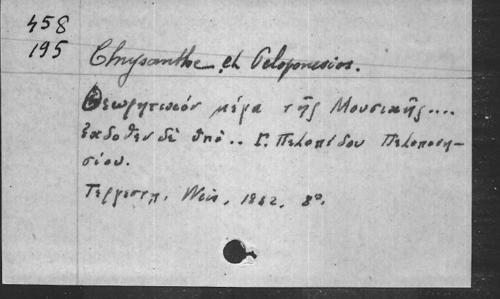 458
195
Chrysanthe, et Peloponesios.
Θεωρητικόν μέγα τῆς Μουσικῆς....
ἐκδοθὲν δὲ ὑπὸ.. Γ. Πελοπίδου Πελοποννη-
σίου.
Τεργεστη, Weis, 1832. 8°.